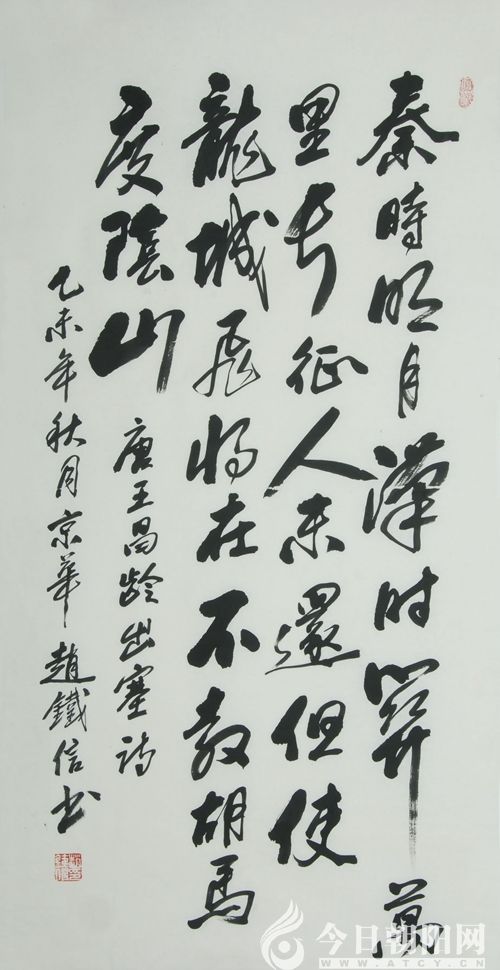 秦時明月漢时關萬
里长征人未還但使
龍城飛将在不教胡馬
度陰山
唐王昌龄出塞诗
乙未年秋月京华趙鐵信书
今日朝阳网
WWW.ATCY.CN